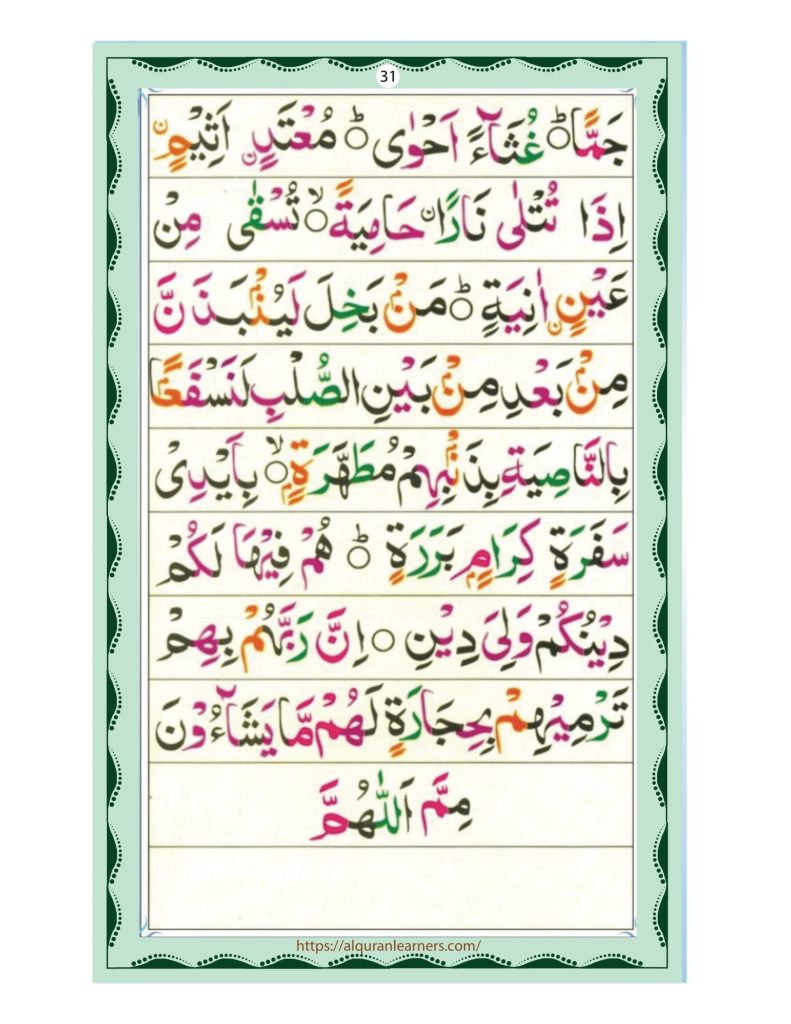 31
جَمًّا ؕ○ غُثَآءً اَحْوٰى ؕ○ مُعْتَدٍۭ اَثِيْمٍۭ
اِذَا تُتْلٰى نَارًا حَامِيَةً ۙ○ تُسْقٰى مِنْ
عَيْنٍۭ اٰنِيَةٍ ؕ○ مَنْۢ بَخِلَ لَيُنْۢبَذَنَّ
مِنْۢ بَعْدِ مِنْۢ بَيْنِ الصُّلْبِ لَنَسْفَعًۢا
بِالنَّاصِيَةِ بِذَنْۢبِهِمْ مُطَهَّرَةٍۭ ۙ○ بِاَيْدِىْ
سَفَرَةٍ كِرَامٍۭ بَرَرَةٍ ؕ○ هُمْ فِيْهَا لَكُمْ
دِيْنُكُمْ وَلِىَ دِيْنِ ○ اِنَّ رَبَّهُمْ بِهِمْ
تَرْمِيْهِمْ بِحِجَارَةٍ لَهُمْ مَّا يَشَآءُوْنَ
مِمَّ اَللّٰهُمَّ
https://alquranlearners.com/